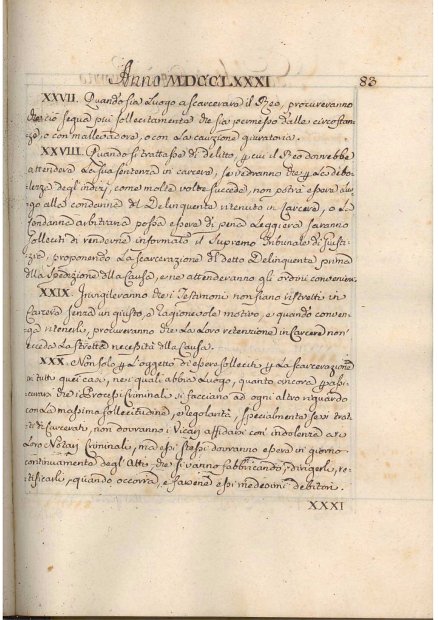 Anno MDCCLXXXI 83
XXVII. Quando sia Luogo a scarcerare il Reo, procureranno
che ciò segua più sollecitamente che sia permesso dalle circostan-
ze, o con mallevadore, o con la cauzione giuratoria.
XXVIII. Quando si trattasse di delitto, p cui il Reo dovrebbe
attendere la sua sentenza in carcere, se vedranno che p la debo-
lezza degl'indizj, come molte volte succede, non potrà essere luo-
go alla condanna del Delinquente ritenuto in Carcere, o La
condanna arbitraria possa essere di pena Leggiera saranno
solleciti di renderne informato il Supremo Tribunale di Giusti-
zia, proponendo La scarcerazione del detto Delinquente prima
della Spedizione della Causa, e ne attenderanno gli ordini convenienti
XXIX. Invigileranno che i Testimonj non siano ristretti in
Carcere senza un giusto, e ragionevole motivo, e quando conven-
ga ritenerli, procureranno che La Loro retenzione in Carcere non
ecceda La stretta necessità della Causa.
XXX. Non solo p L'oggetto di essere solleciti p La scarcerazione
in tutti quei casi, nei quali abbia Luogo, quanto ancora p assi-
curarsi che i Processi Criminali si facciano ad ogni altro riguardo
con La massima sollecitudine, e regolarità, specialmente se si trat-
ti di Carcerati, non dovranno i Vicarj affidarsi con indolenza ai
Loro Notari Criminali, ma essi stessi dovranno essere in giorno
continuamente degl'Atti che si vanno fabbricando, dirigerli, re-
tificarli, quando occorra, e farsene essi medesimi debitori.
XXXI